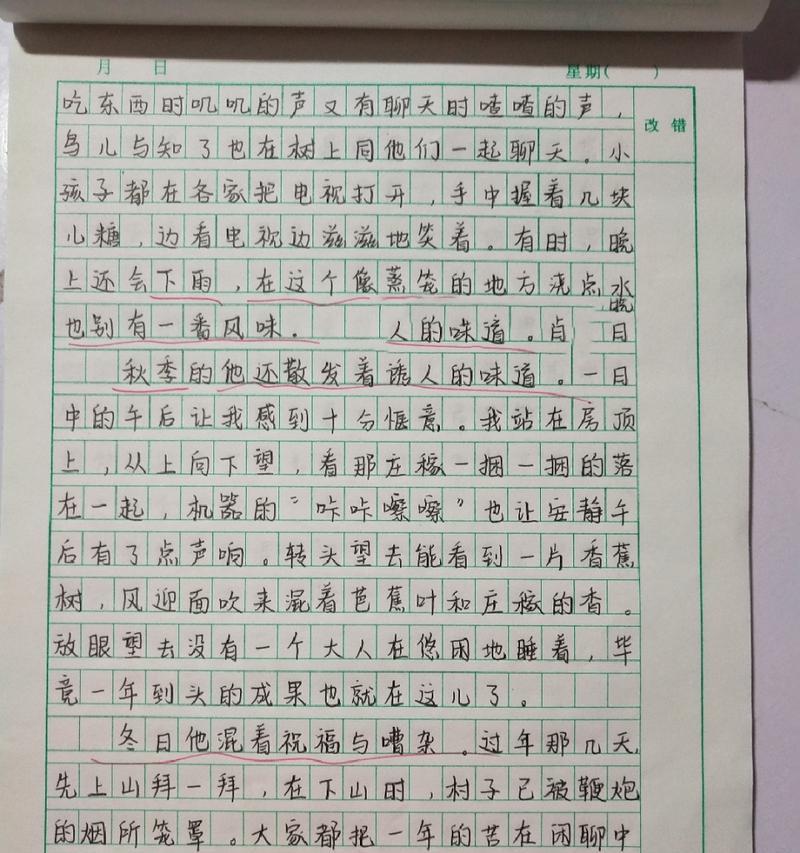 月 日 星期( )
改错
吃东西时叽叽的声又有聊天时喳喳的声,
鸟儿与知了也在树上同他们一起聊天。小
孩子都在各家把电视打开,手中握着几块
儿糖,边看电视边滋滋地笑着。有时,晚
上还会下雨,在这个像蒸笼的地方浇点水
也别有一番风味. 人的味道。 日
秋季的他还散发着诱人的味道。一日
中的午后让我感到十分惬意。我站在房顶
上,从上向下望,看那庄稼一捆一捆的落
在一起,机器的“咔咔嚓嚓”也让安静午
后有了点声响。转头望去能看到一片香蕉
树,风迎面吹来混着芭蕉叶和庄稼的香。
放眼望去没有一个大人在倦困地睡着,毕
竟一年到头的成果也就在这儿了。
冬日他混着祝福与嘈杂。过年那几天,
先上山拜一拜,在下山时,村子已被鞭炮
的烟所笼罩。大家都把一年的苦在闲聊中